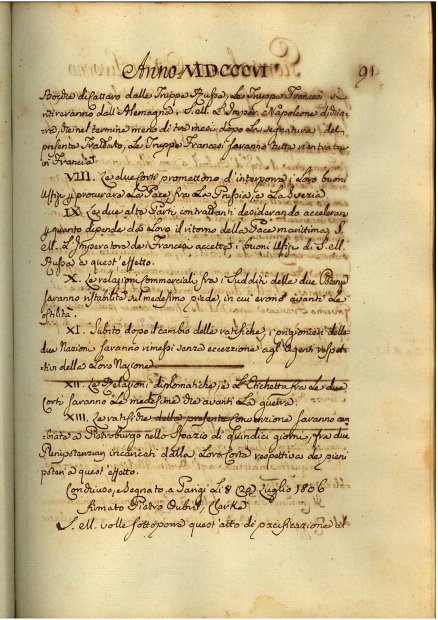 Anno MDCCCVI
91
Bocche di Cattaro dalle Truppe Russe, le Truppe Francesi si
ritireranno dall'Alemagna. S. M. L'Imper. Napoleone dichia
ra, che nel termine meno di tre mesi dopo la segnatura del
presente Trattato, le Truppe Francesi saranno tutte rientrate
in Francia
VIII. Le due Corti promettono di interporre i loro buoni
Uffizj per procurare la Pace fra la Prussia, e la Svezia
IX. Le due alte Parti contrattanti desiderando accelerar
per quanto dipende da loro il ritorno della Pace marittima S.
M. L'Imperatore dei Francesi accetterà i buoni Uffizj di S. M.
Russa a quest'effetto.
X. Le relazioni commerciali fra i Sudditi delle due Potenze
saranno ristabilite sul medesimo piede, in cui erano avanti le
ostilità.
XI. Subito dopo il cambio delle ratifiche, i prigionieri delle
due Nazioni saranno rimessi senza eccezzione agli Agenti rispet
tivi della loro Nazione
XII. Le Relazioni diplomatiche, e L'Etichetta fra le due
Corti saranno le medesime che avanti la guerra.
XIII. Le ratifiche della presente Convenzione saranno cam
biate a Pietroburgo nello Spazio di quindici giorni, fra due
Plenipotenziarj incaricati dalla loro Corte respettiva de pieni
poteri a quest'effetto.
Conchiuso, e Segnato a Parigi li 8 (20) Luglio 1806
Firmato Pietro Dubril, Clarke
S. M. volle sottoporre quest'atto di pacificazione al